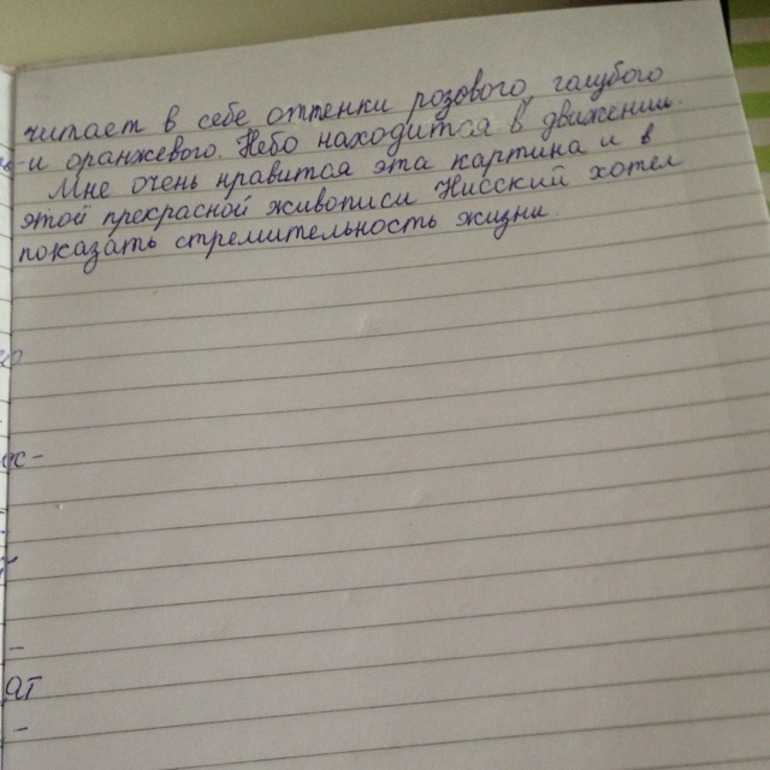 читает в себе оттенки розового, голубого
и оранжевого. Небо находится в движении.
Мне очень нравится эта картина и в
этой прекрасной живописи Нисский хотел
показать стремительность жизни.